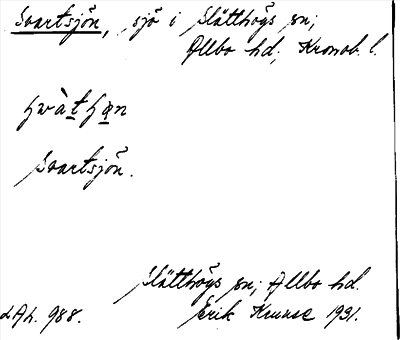 Svartsjön, sjö i Slätthögs sn;
Allbo hd; Kronob. l.
Svartsjön.
Slätthögs sn; Allbo hd.
LAL. 988. Erik Kruuse 1931.